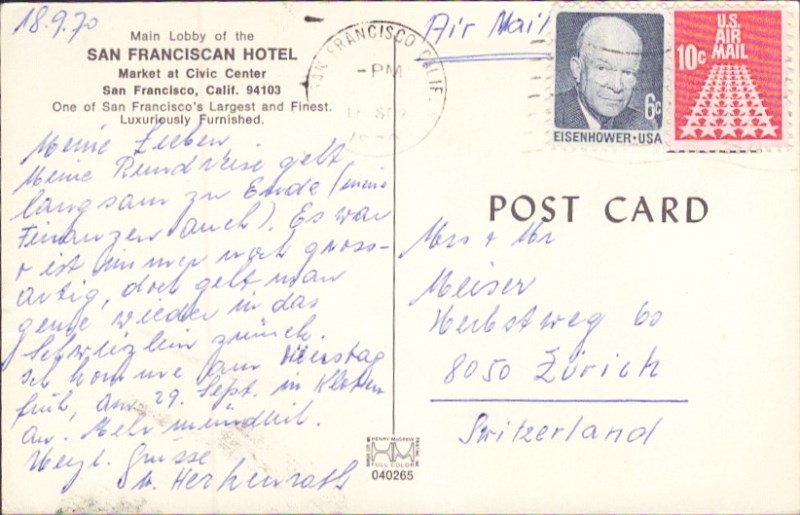 18.9.70
Main Lobby of the
SAN FRANCISCAN HOTEL
Market at Civic Center
San Francisco, Calif. 94103
One of San Francisco's Largest and Finest.
Luxuriously Furnished.
Meine Lieben,
Meine Rundreise geht
langsam zu Ende (meine
Finanzen auch). Es war
+ ist immer noch gross-
artig, doch geht man
gerne wieder in das
Schwizlein zurück.
Ich komme am Dienstag
früh, am 29. Sept. in Kloten
an. Mehr mündlich.
Herzl. Grüsse
Herkenrath
SAN FRANCISCO, CALIF.
-PM
Air Mail
6c
EISENHOWER·USA
U.S.
AIR
MAIL
10c
POST CARD
Mrs + Mr
Meiser
Herbstweg 60
8050 Zürich
Switzerland
HENRY McGREW
HM
FULL COLOR
040265